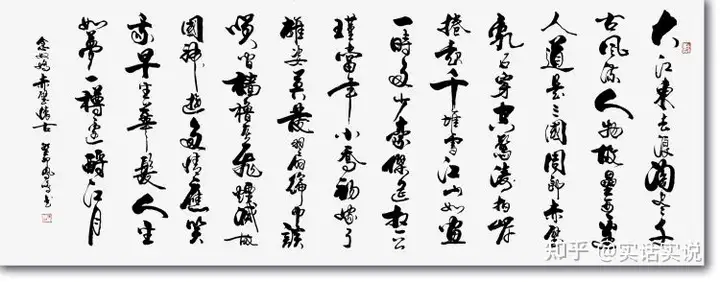 大江東去浪淘盡千
古風流人物故壘西邊
人道是三國周郎赤壁
亂石穿空驚濤拍岸
捲起千堆雪江山如畫
一時多少豪傑遙想公
瑾當年小喬初嫁了
雄姿英發羽扇綸巾談
笑間檣櫓灰飛煙滅故
國神遊多情應笑
我早生華髮人生
如夢一樽還酹江月
念奴嬌赤壁懷古
知乎 @实话实说